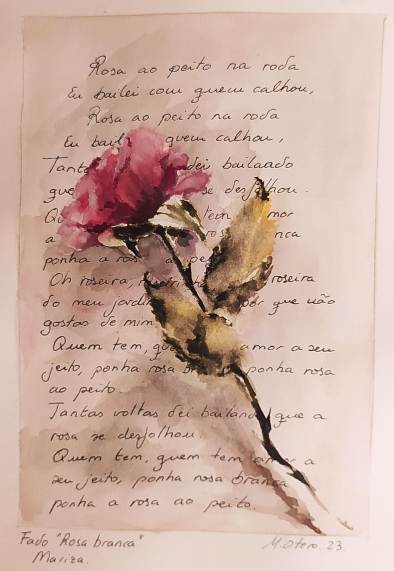 Rosa ao peito na roda
Eu bailei com quem calhou,
Rosa ao peito na roda
Eu bail quem calhou,
Tant dei bailando
que se desfolhou.
Qu tem mor
a ros nca
ponha a ros a pe
Oh roseira, roseira
do meu jardim por que não
gostas de mim
Quem tem, que amor a seu
jeito, ponha rosa br ponha rosa
ao peito.
Tantas voltas dei bailand que a
rosa se desfolhou.
Quem tem, quem tem amor a
seu jeito, ponha rosa branca
ponha a rosa ao peito.
Fado "Rosa branca"
Mariza.
M. Otero. 23.